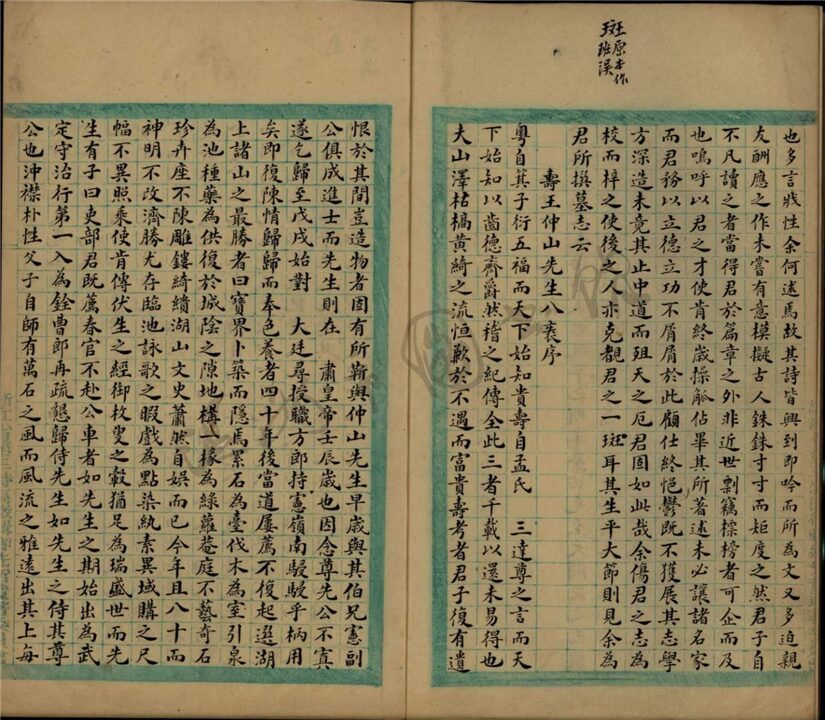 斑原本作
班误
也多言戕性余何述焉故其詩皆興到即吟而所為文又多迫親
友酬應之作未嘗有意模擬古人銖銖寸寸而矩度之然君子自
不凡讀之者當得君於篇章之外非近世剽竊標榜者可企而及
也嗚呼以君之才使肯終歲操觚佔畢其所著述未必讓諸名家
而君務以立德立功不屑屑於此顧仕終悒鬱既不獲展其志學
方深造未竟其止中道而殂天之厄君固如此哉余傷君之志為
校而梓之使後之人亦克覩君之一斑耳其生平大節則見余為
君所撰墓志云
壽王仲山先生八袠序
粵自箕子衍五福而天下始知貴壽自孟氏 三達尊之言而天
下始知以齒德齊爵然稽之紀傳全此三者千載以還未易得也
夫山澤枯槁黃綺之流恒歉於不遇而富貴壽考者君子復有遺
恨於其間豈造物者固有所靳與仲山先生早歲與其伯兄憲副
公俱成進士而先生則在 肅皇帝壬辰歲也因念尊先公不寘
遂乞歸至戊戌始對 大廷尋授職方郎持憲嶺南駸駸乎柄用
矣即復陳情歸歸而奉色養者四十年後當道屢薦不復起選湖
上諸山之最勝者曰寶界卜築而隱焉累石為臺伐木為室引泉
為池種藥為供復於城陰之隙地構一椽為綠蘿菴庭不藝奇石
珍卉座不陳雕鏤綺繢湖山文史蕭然自娛而已今年且八十而
神明不改濟勝尤存臨池詠歌之暇戲為點染紈素異域購之尺
幅不異照乘使肯傳伏生之經御枚叟之轂猶足為瑞盛世而先
生有子曰吏部君既薦春官不赴公車者如先生之期始出為武
定守治行第一入為銓曹郎再疏懇歸侍先生如先生之侍其尊
公也沖襟朴性父子自師有萬石之風而風流之雅遠出其上每